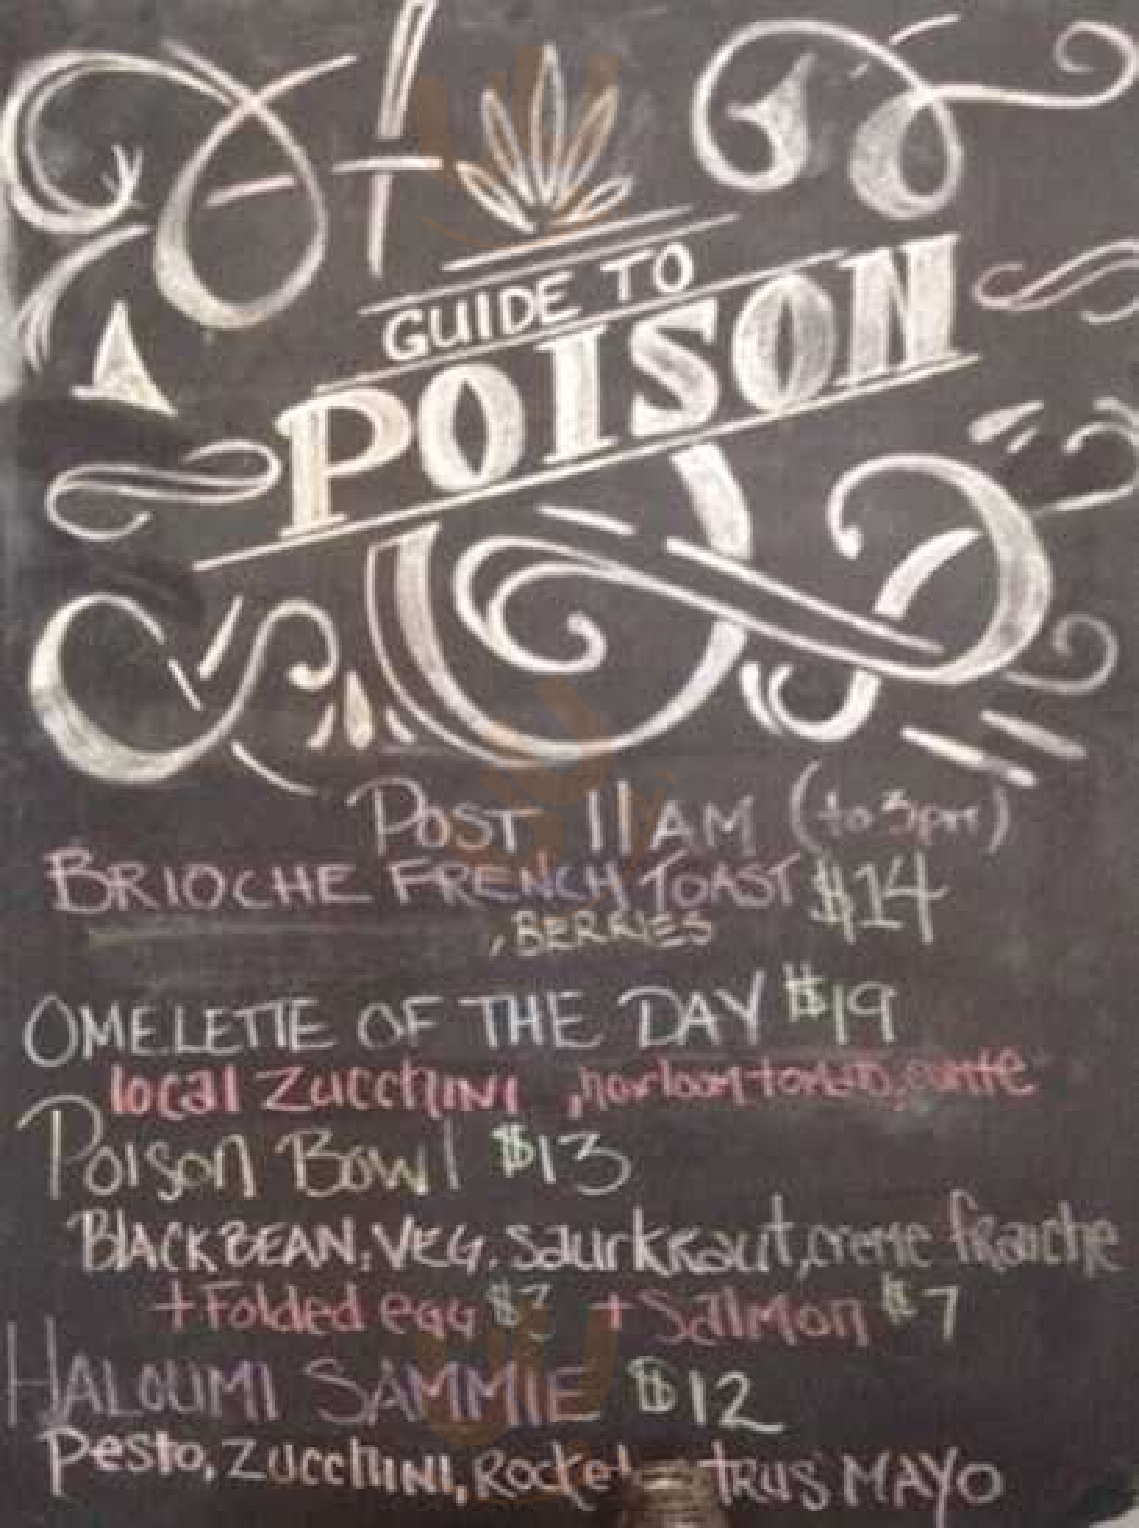 GUIDE TO
POISON
POST 11AM (to 3pm)
BRIOCHE FRENCH TOAST $14
, BERRIES
OMELETTE OF THE DAY $19
local ZUCCHINI , heirloom tomato,
POISON BOWl $13
BlACKBEAN, VEG, saurkraut, creme fraiche
+ Folded egg $3 + SalMon $7
HALOUMI SAMMIE $12
Pesto, ZUCCHINI, Rocket trus MAYO